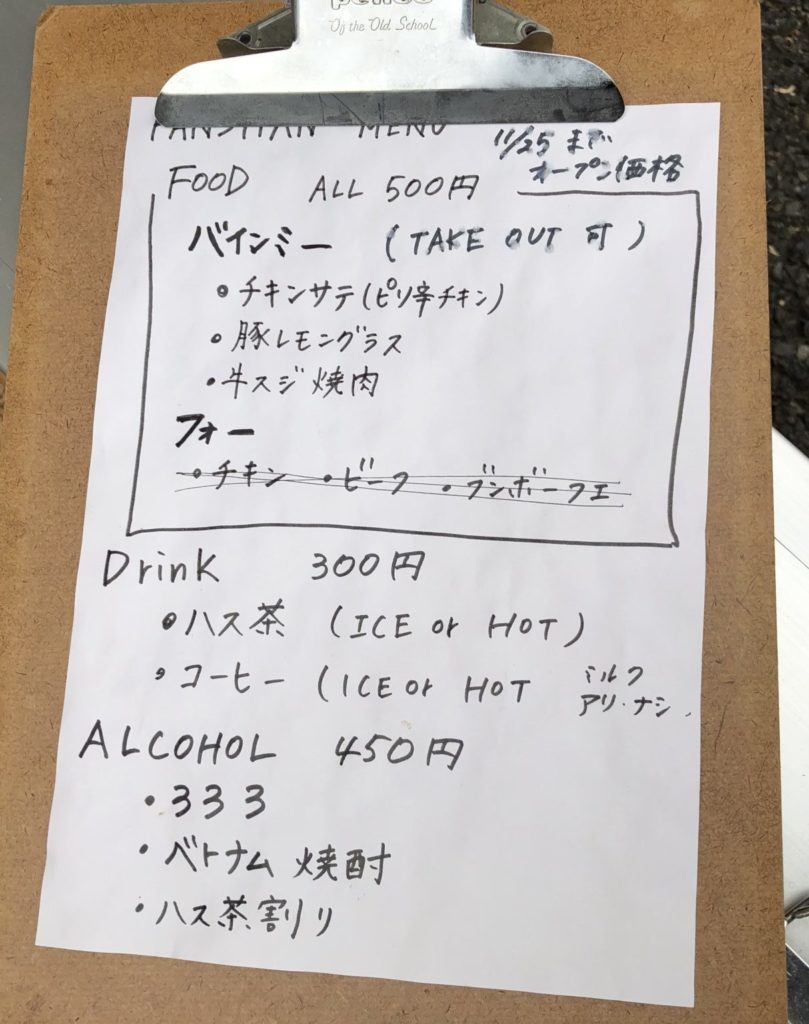 Of the Old School
MENU
11/25 まで
オープン価格
FOOD ALL 500円
バインミー (TAKE OUT 可)
・チキンサテ(ピリ辛チキン)
・豚レモングラス
・牛スジ焼肉
フォー
・チキン ・ビーフ ・ブンボーフエ
Drink 300円
・ハス茶 (ICE or HOT)
・コーヒー (ICE or HOT ミルク
アリ・ナシ
ALCOHOL 450円
・333
・ベトナム焼酎
・ハス茶割り